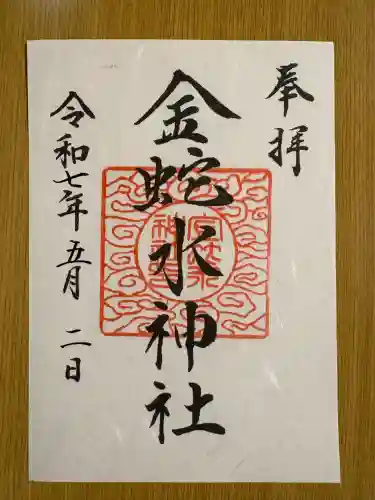 奉拝
金蛇水神社
令和七年五月二日